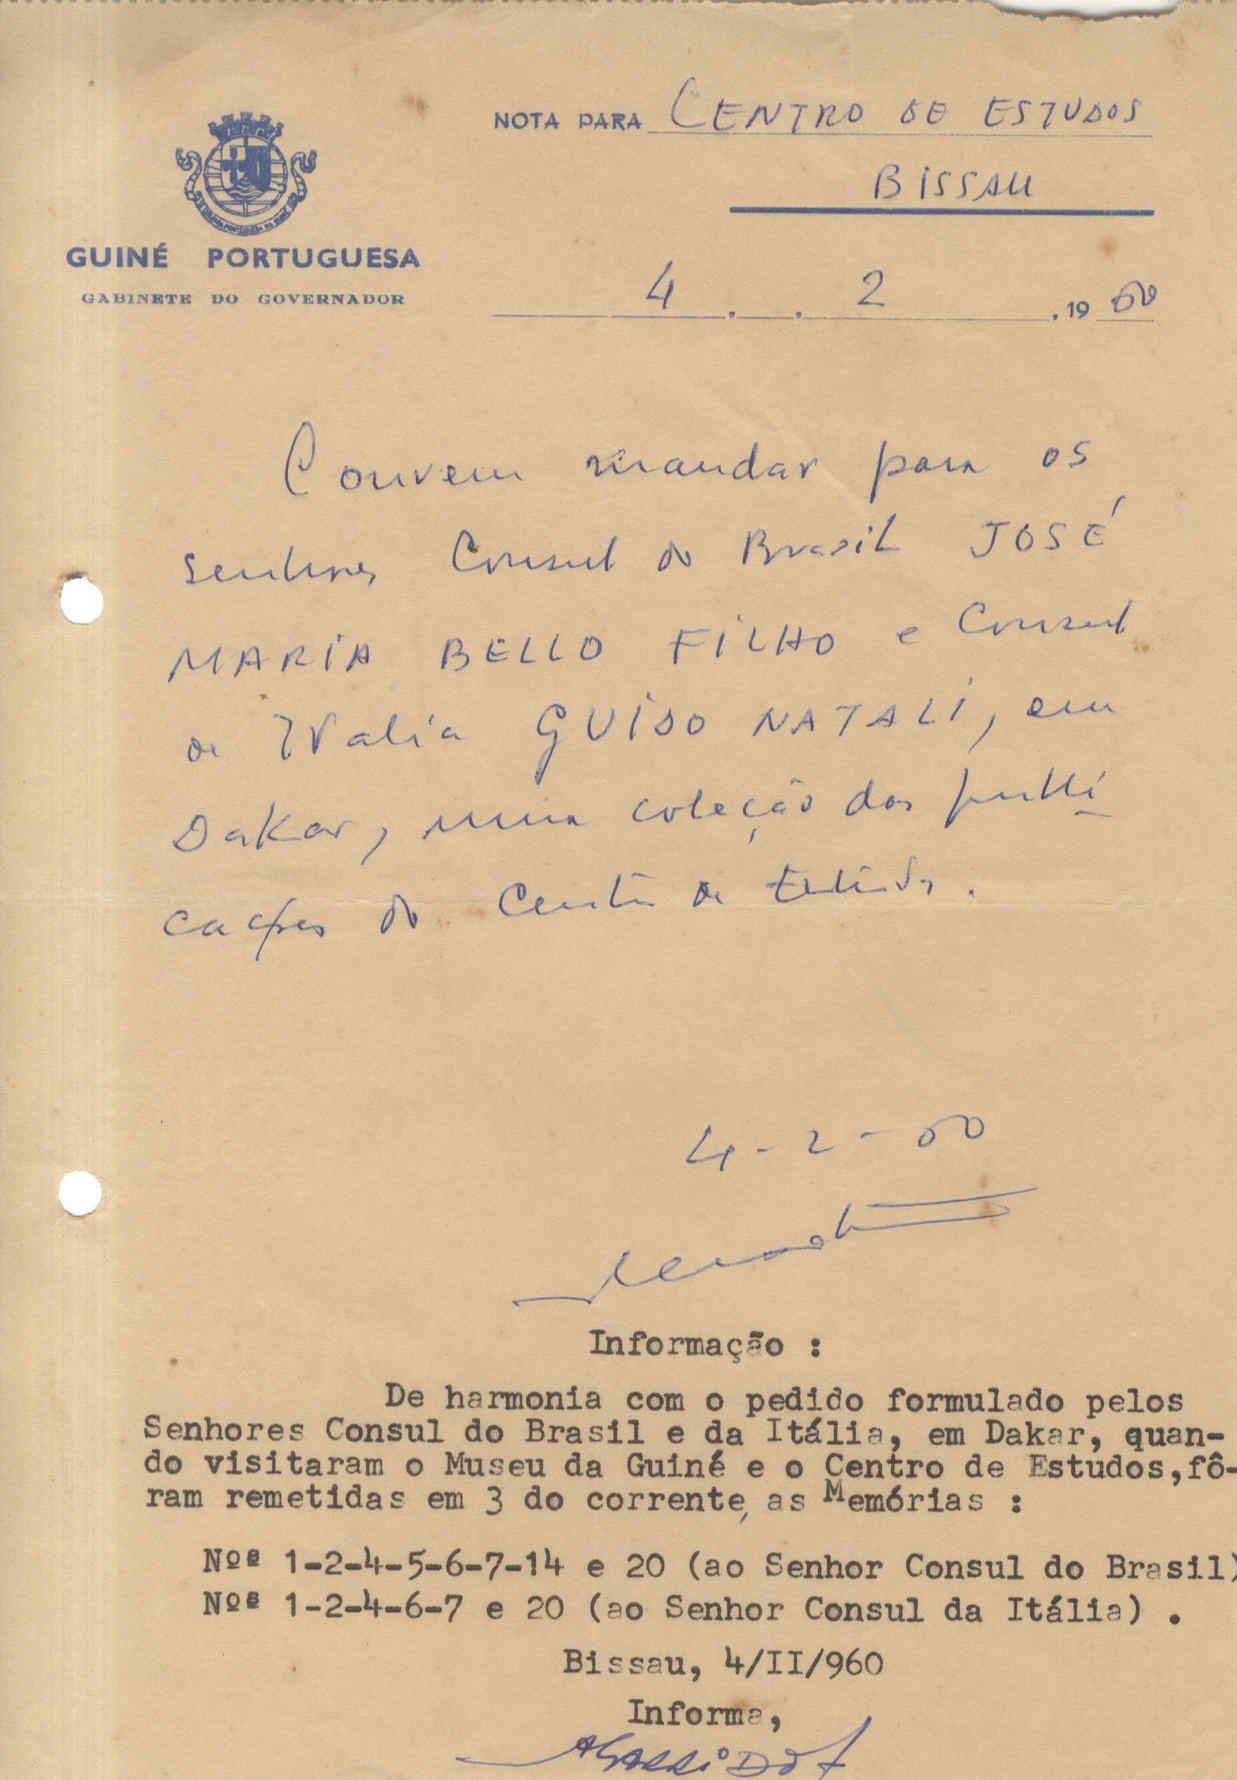 NOTA PARA CENTRO DE ESTUDOS
BISSAU
GUINÉ PORTUGUESA
GABINETE DO GOVERNADOR
4 . . 2 . 19 60
Convem mandar para os
senhores Consul do Brasil JOSÉ
MARIA BELLO FILHO e Consul
de Italia GUIDO NATALI, em
Dakar, uma coleção das publi-
cações do Centro de Estudos.
4-2-60
Informação :
De harmonia com o pedido formulado pelos
Senhores Consul do Brasil e da Itália, em Dakar, quan-
do visitaram o Museu da Guiné e o Centro de Estudos,fô-
ram remetidas em 3 do corrente, as Memórias :
Nºs 1-2-4-5-6-7-14 e 20 (ao Senhor Consul do Brasil)
Nºs 1-2-4-6-7 e 20 (ao Senhor Consul da Itália) .
Bissau, 4/II/960
Informa,